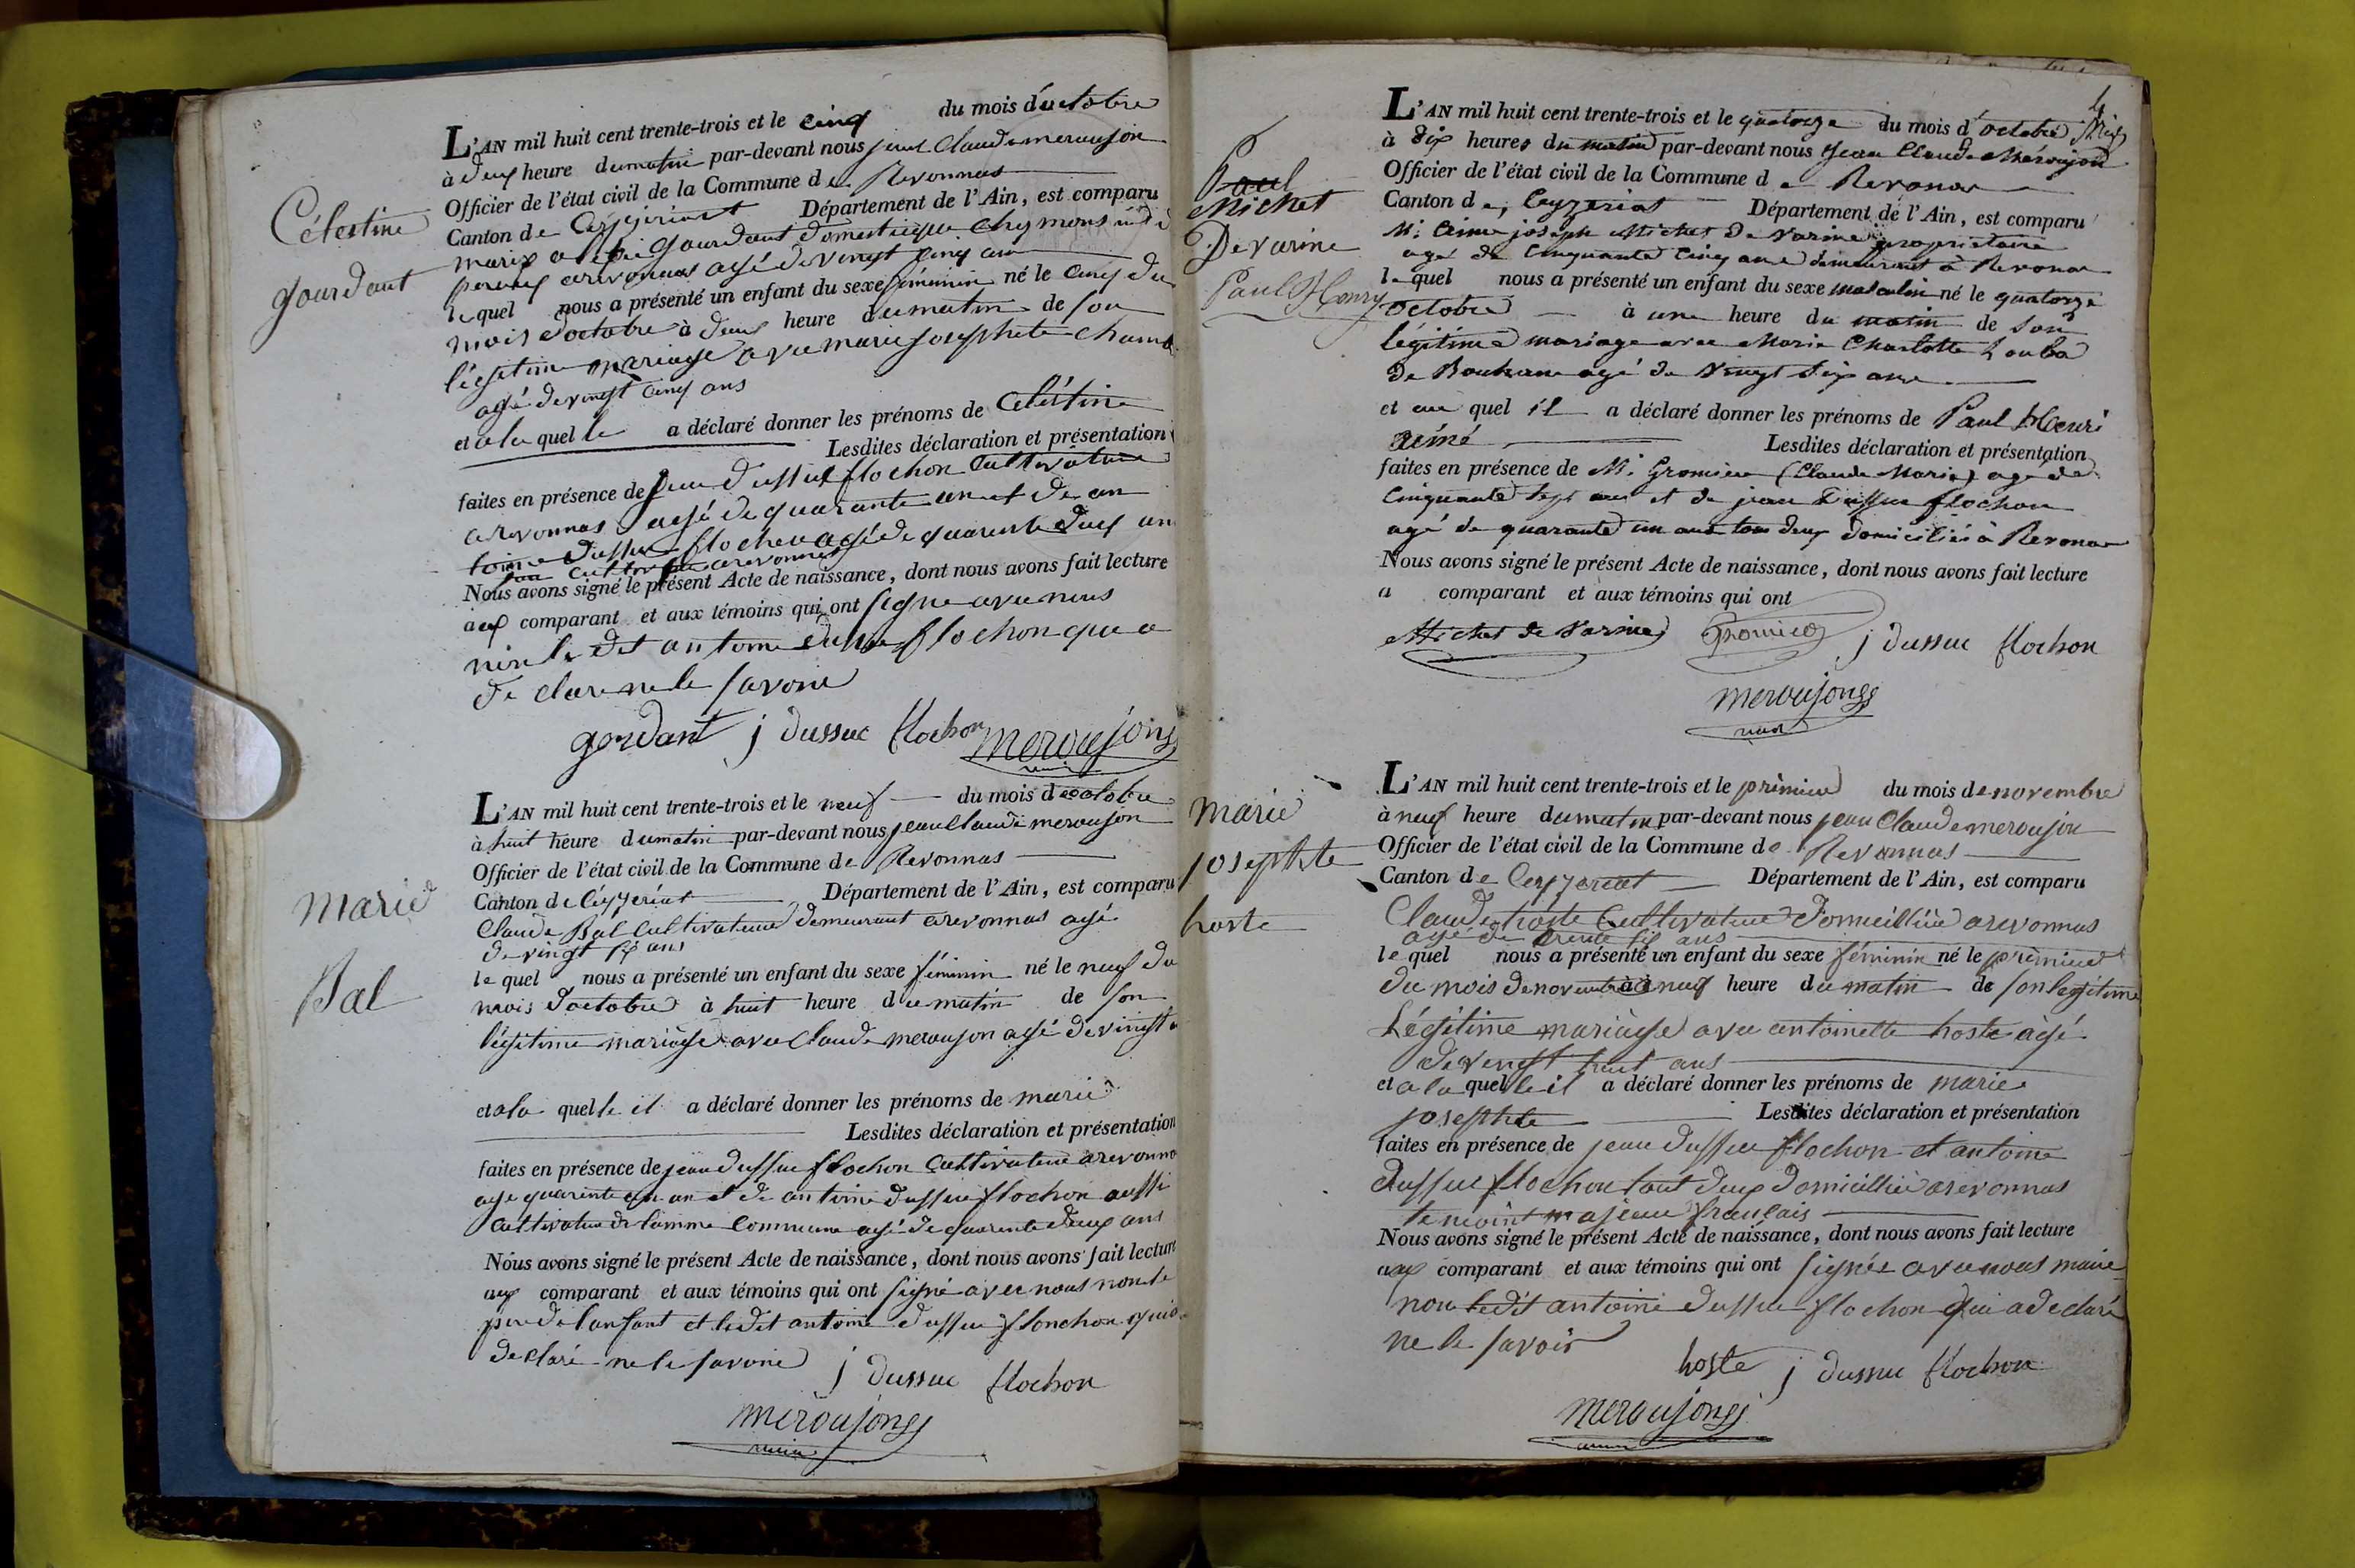 Célestine
gourdant
L'AN mil huit cent trente-trois et le cinq du mois d'octobre
à deux heure du matin par-devant nous jean Claude meroujon
Officier de l'état civil de la Commune de Revonnas
Canton de Céyzériat Département de l'Ain, est comparu
gourdant domestique
a revonnas agé de vingt cinq ans
le quel nous a présenté un enfant du sexe féminin né le cinq du
mois d'octobre à deux heure du matin de son
légitime mariage avec marie josephete
agé de vingt cinq ans
et a la quelle a déclaré donner les prénoms de Celéstine
Lesdites déclaration et présentation
faites en présence de jean dussue flochon Cultivateur
a revonnas agé de quarante un et de an
toine dussue flochon agé de quarente deux an
Cultivateur a revonnas
Nous avons signé le présent Acte de naissance, dont nous avons fait lecture
aux comparant et aux témoins qui ont signe avec nous
non le dit antoine dussue flochon que a
declare ne le savoire
gourdant j dussuc flochon meroujong
marie
Bal
L'AN mil huit cent trente-trois et le neuf du mois d octobre
à huit heure du matin par-devant nous jean Claude meroujon
Officier de l'état civil de la Commune de Revonnas
Canton de Céyzériat Département de l'Ain, est comparu
Claude Bal Cultivateur demeurant a revonnas agé
de vingt six ans
le quel nous a présenté un enfant du sexe féminin né le neuf du
mois d'octobre à huit heure du matin de son
légitime mariage avec Claude meroujon agé de vingt
et a la quelle il a déclaré donner les prénoms de marie
Lesdites déclaration et présentation
faites en présence de jean dussue flochon Cultivateur a revonna
age quarente un an et de antoine dussue flochon aussi
Cultivateur de lamme Commune agé de quarente deux ans
Nous avons signé le présent Acte de naissance, dont nous avons fait lecture
aux comparant et aux témoins qui ont signé avec nous non le
pere de lanfant et ledit antoine dussue flonchon qui a
declaré ne le savoire j dussuc flochon
meroujong
Paul
Michet
De varine
Paul Henry
L'AN mil huit cent trente-trois et le quatorze du mois d'octobre
à dix heures du matin par-devant nous Jean Claude Méroujon
Officier de l'état civil de la Commune de Revonas
Canton de Ceyzeriat Département de l'Ain, est comparu
M. Aimé joseph Michet de Varine proprietaire
agé de Cinquante Cinq ans demeurant à Revonas
le quel nous a présenté un enfant du sexe masculin né le quatorze
octobre à une heure du matin de son
légitime mariage avec Marie Charlotte Louba
de Bouhane agé de vingt Six ans
et au quel il a déclaré donner les prénoms de Paul Henri
aimé Lesdites déclaration et présentation
faites en présence de M. Gromier (Claude Marie) agé de
Cinquante Sept ans et de jean Dussue flochon
agé de quarante un ans tous deux domiciliés à Revonas
Nous avons signé le présent Acte de naissance, dont nous avons fait lecture
a comparant et aux témoins qui ont
Michet de Varine Gromier j dussuc flochon
meroujong
marie
josephte
hoste
L'AN mil huit cent trente-trois et le primier du mois de novembre
à neuf heure du matin par-devant nous jean Claude meroujon
Officier de l'état civil de la Commune de Revonnas
Canton de Ceyzeriat Département de l'Ain, est comparu
Claude hoste Cultivateur Domicillié a revonnas
agé de trente six ans
le quel nous a présenté un enfant du sexe féminin né le primier
du mois de novembre à neuf heure du matin de son legitime
Légitime mariage avec antoinette hoste agé
de vingt huit ans
et a la quelle il a déclaré donner les prénoms de marie
josephte Lesdites déclaration et présentation
faites en présence de jean dussue flochon et antoine
dussue flochon tout deux Domicillié a revonnas
temoint majeur francais
Nous avons signé le présent Acte de naissance, dont nous avons fait lecture
aux comparant et aux témoins qui ont signée avec nous maire
non ledit antoine dussue flochon qui a declaré
ne le savoir
hoste j dussuc flochon
meroujong